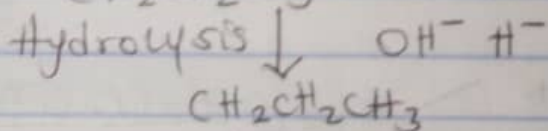 Hydrolysis ↓ OH⁻ H⁻
CH₂CH₂CH₃